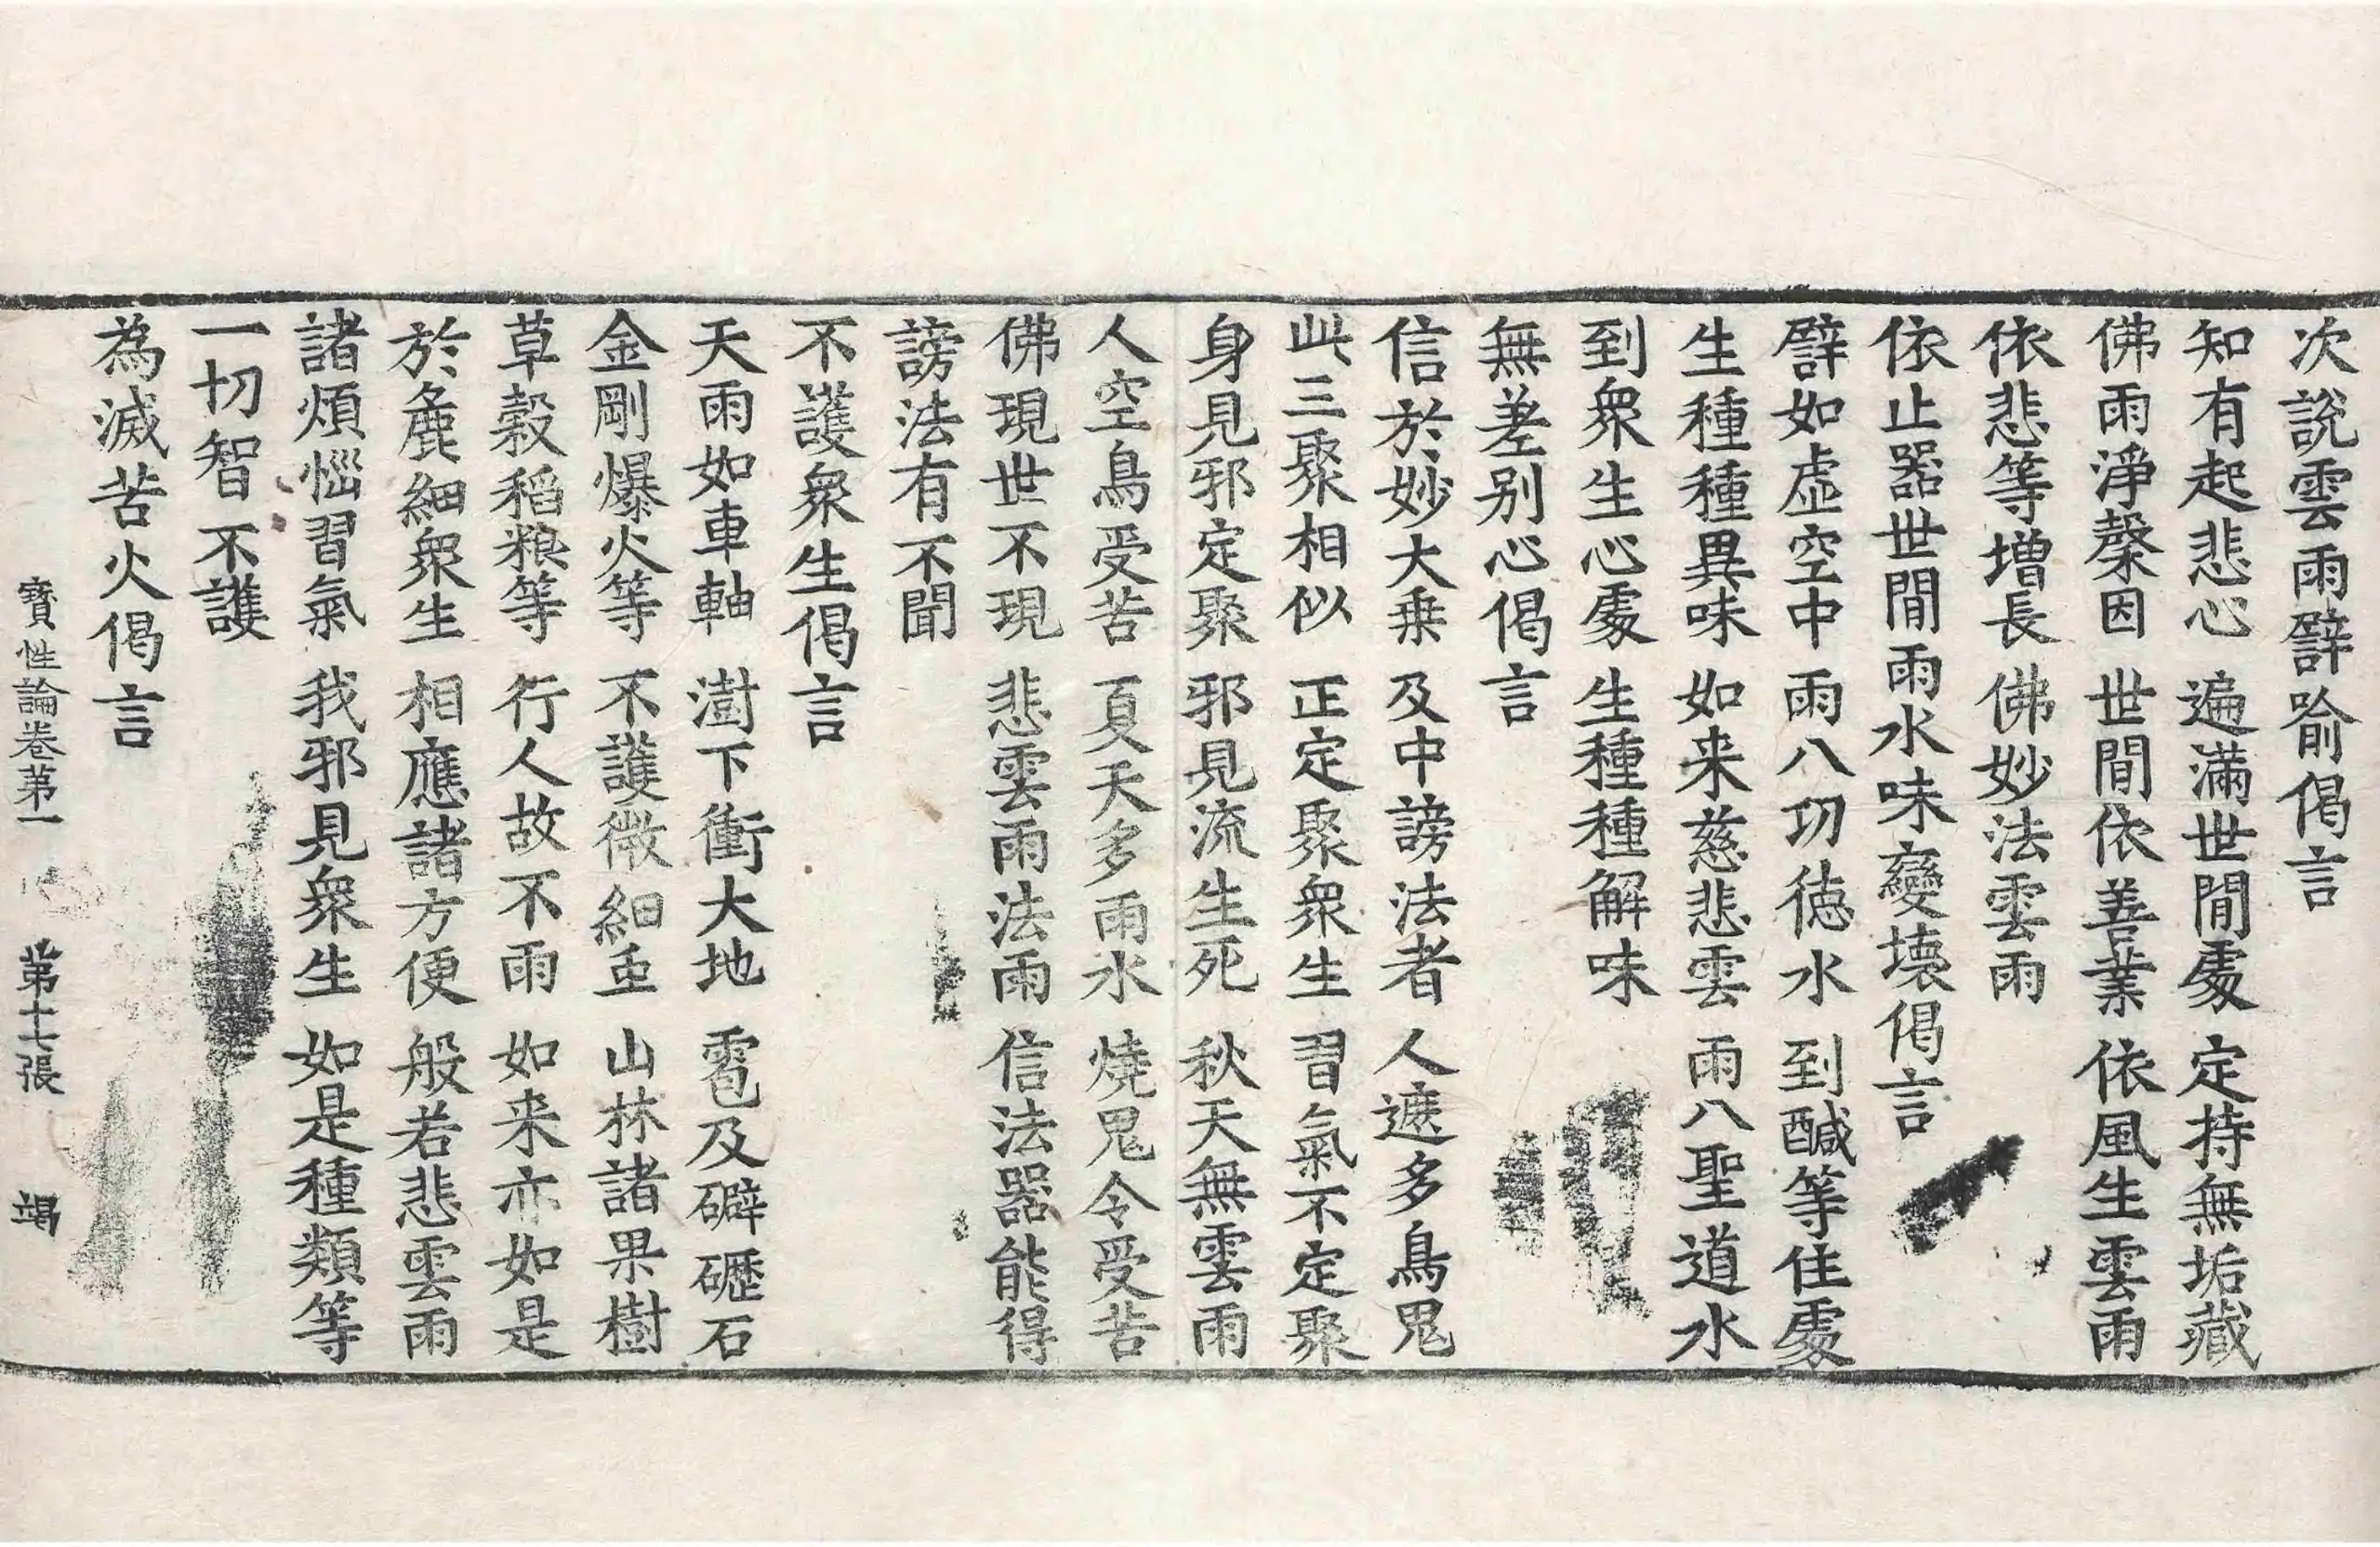 次說雲雨譬喻偈言
知有起悲心 遍滿世間處 定持無垢藏
佛雨淨穀因 世間依善業 依風生雲雨
依悲等增長 佛妙法雲雨
依止器世間雨水味變壞偈言
譬如虛空中 雨八功徳水 到醎等住處
生種種異味 如来慈悲雲 雨八聖道水
到衆生心處 生種種解味
無差别心偈言
信於妙大乗 及中謗法者 人遮多鳥鬼
此三聚相似 正定聚衆生 習氣不定聚
身見邪定聚 邪見流生死 秋天無雲雨
人空鳥受苦 夏天多雨水 燒鬼令受苦
佛現世不現 悲雲雨法雨 信法器能得
謗法有不聞
不護衆生偈言
天雨如車軸 澍下衝大地 雹及礔礰石
金剛爆火等 不護微細䖝 山林諸果樹
草穀稻粮等 行人故不雨 如来亦如是
於麁細衆生 相應諸方便 般若悲雲雨
諸煩惱習氣 我邪見衆生 如是種類等
一切智不護
為滅苦火偈言
寶性論卷第一 第十七張 竭